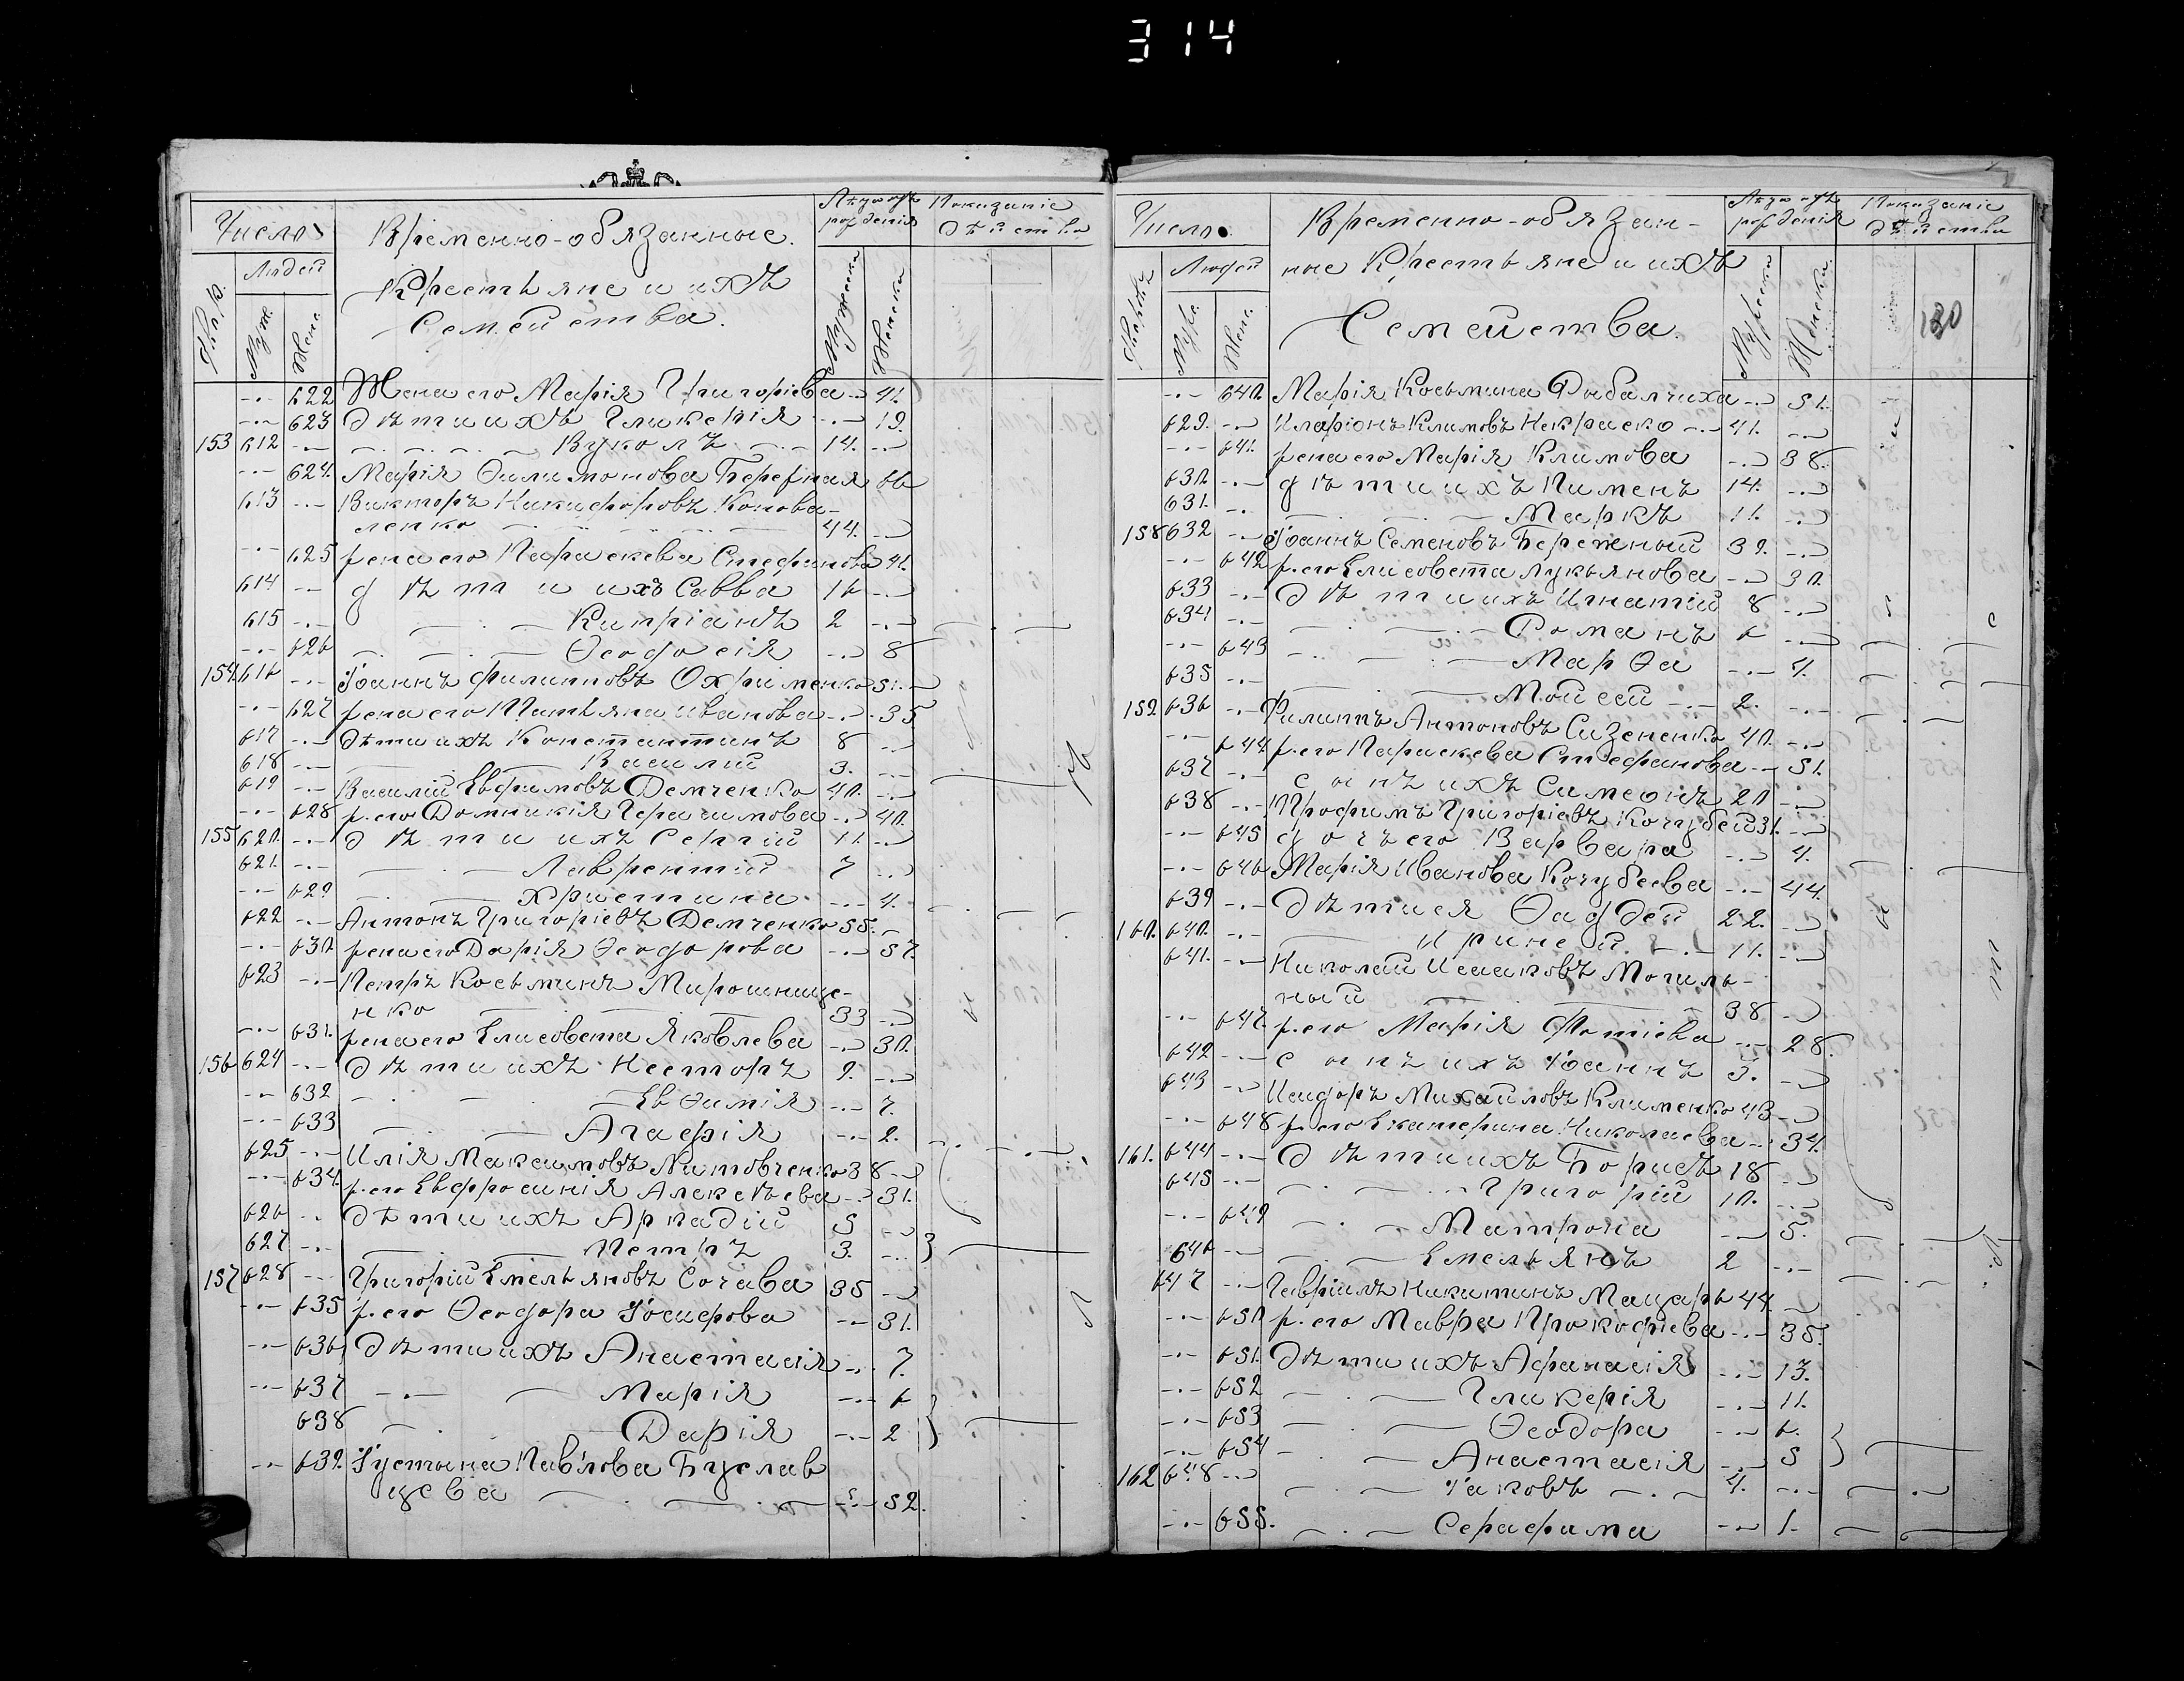 314
Число
Временно-обязанные
Крестьяне и ихъ
Семейства.
Лѣта отъ рожденія
Показаніе дѣйства
Людей
Муж.
Женс.
Мужеска
Женска
-.- 622 Жена его Марія Григоріева -.- 41.
-.- 623 Дѣти ихъ Гликерія -.- 19.
153 612 -.- Вуколъ 14. -.-
-.- 624. Марія Филимонова Бережная 66
613 -.- Викторъ Никифоровъ Конова-
ленко 44. -.-
-.- 625 жена его Параскева Стефанова 41.
614 -.- дѣти ихъ Савва 16 -.-
615 -.- Кипріанъ 2 -.-
-.- 626 Ѳеодосія -.- 8
154 616 -.- Іоаннъ Филипповъ Охрименко 51. -.-
-.- 627 жена его Татьяна Иванова -.- 35
617 -.- дѣти ихъ Константинъ 8 -.-
618 -.- Василій 3. -.-
619 -.- Василій Евфимовъ Демченко 40. -.-
-.- 628 ж. его Домникія Герасимова -.- 40.
155 620. -.- Дѣти ихъ Сергій 11. -.-
621. -.- Лаврентій 7 -.-
-.- 629 Христина -.- 4.
622 -.- Антонъ Григоріевъ Демченко 55. -
-.- 630. жена его Дарія Ѳеодорова -.- 57.
623 -.- Петръ Косьминъ Мирошниче-
нко 33 -.-
-.- 631. жена его Елисовета Яковлева -.- 30.
156 624 -.- Дѣти ихъ Несторъ 9. -.-
-.- 632 Евѳимія -.- 7.
-.- 633 Агафія -.- 2.
625 -.- Илія Максимовъ Литовченко 38 -.-
-.- 634. ж. его Евфросинія Алексѣева -.- 31.
626 -.- дѣти ихъ Аркадій 5 -.-
627 -.- Петръ 3. -.-
157 628 -.- Григорій Емельяновъ Сочава 35 -.-
-.- 635 ж. его Ѳеодора Іосифова -.- 31.
-.- 636 Дѣти ихъ Анастасія -.- 7.
-.- 637 Марія -.- 6
638 Дарія -.- 2
-.- 639. Іустина Павлова Буслав
цева -.- 52.
Число
Временно-обязан-
ные Крестьяне и ихъ
Семейства.
Лѣта отъ рожденія
Показаніе дѣйства
Людей
Мужеска
Женска
130
-.- 640. Марія Косьмина Рыбалчиха -.- 51.
629. -.- Иларіонъ Климовъ Некраско -.- 41. -.-
-.- 641. жена его Марія Климова -.- 38.
630 -.- дѣти ихъ Пименъ 14. -.-
631. -.- Маркъ 11. -.-
158 632 -.- Іоаннъ Семеновъ Бережный 39. -.-
-.- 642 ж. его Елисовета Лукьянова -.- 30.
633 -.- Дѣти ихъ Игнатій 8 -.-
634 -.- Романъ 6 -.-
-.- 643 Марѳа -.- 4.
635 -.- Мойсей -.- 2. -.-
159 636 -.- Филиппъ Антоновъ Сизененко 40. -.-
-.- 644 ж. его Параскева Стефанова -.- 51.
637 -.- сынъ ихъ Симеонъ 20 -.-
638 -.- Трофимъ Григоріевъ Кочубей 31. -.-
-.- 645 дочь его Варвара -.- 4.
-.- 646 Марія Иванова Кочубеева -.- 44.
639 -.- Дѣти ея Ѳаддей 22. -.-
160. 640. -.- Ириней -.- 11. -.-
641. -.- Николай Исааковъ Могиль-
ный 38 -.-
-.- 647. ж. его Марія Фотіева -.- 28.
642 -.- сынъ ихъ Іоаннъ 3. -.-
643 -.- Исидоръ Михайловъ Клименко 43 -.-
-.- 648 ж. его Екатерина Николаева -.- 34.
161. 644 -.- Дѣти ихъ Борисъ 18 -.-
645 -.- Григорій 10. -.-
-.- 649 Матрона -.- 5.
646 -.- Емельянъ 2 -.-
647 -.- Гавріилъ Никитинъ Мацарь 44 -.-
-.- 650 ж. его Мавра Прокофіева -.- 38.
-.- 651. Дѣти ихъ Афанасія -.- 13.
-.- 652 Гликерія -.- 11.
-.- 653 Ѳеодора -.- 6.
-.- 654 Анастасія -.- 5
162 648 -.- Іаковъ 4. -.-
-.- 655. Серафима -.- 1.